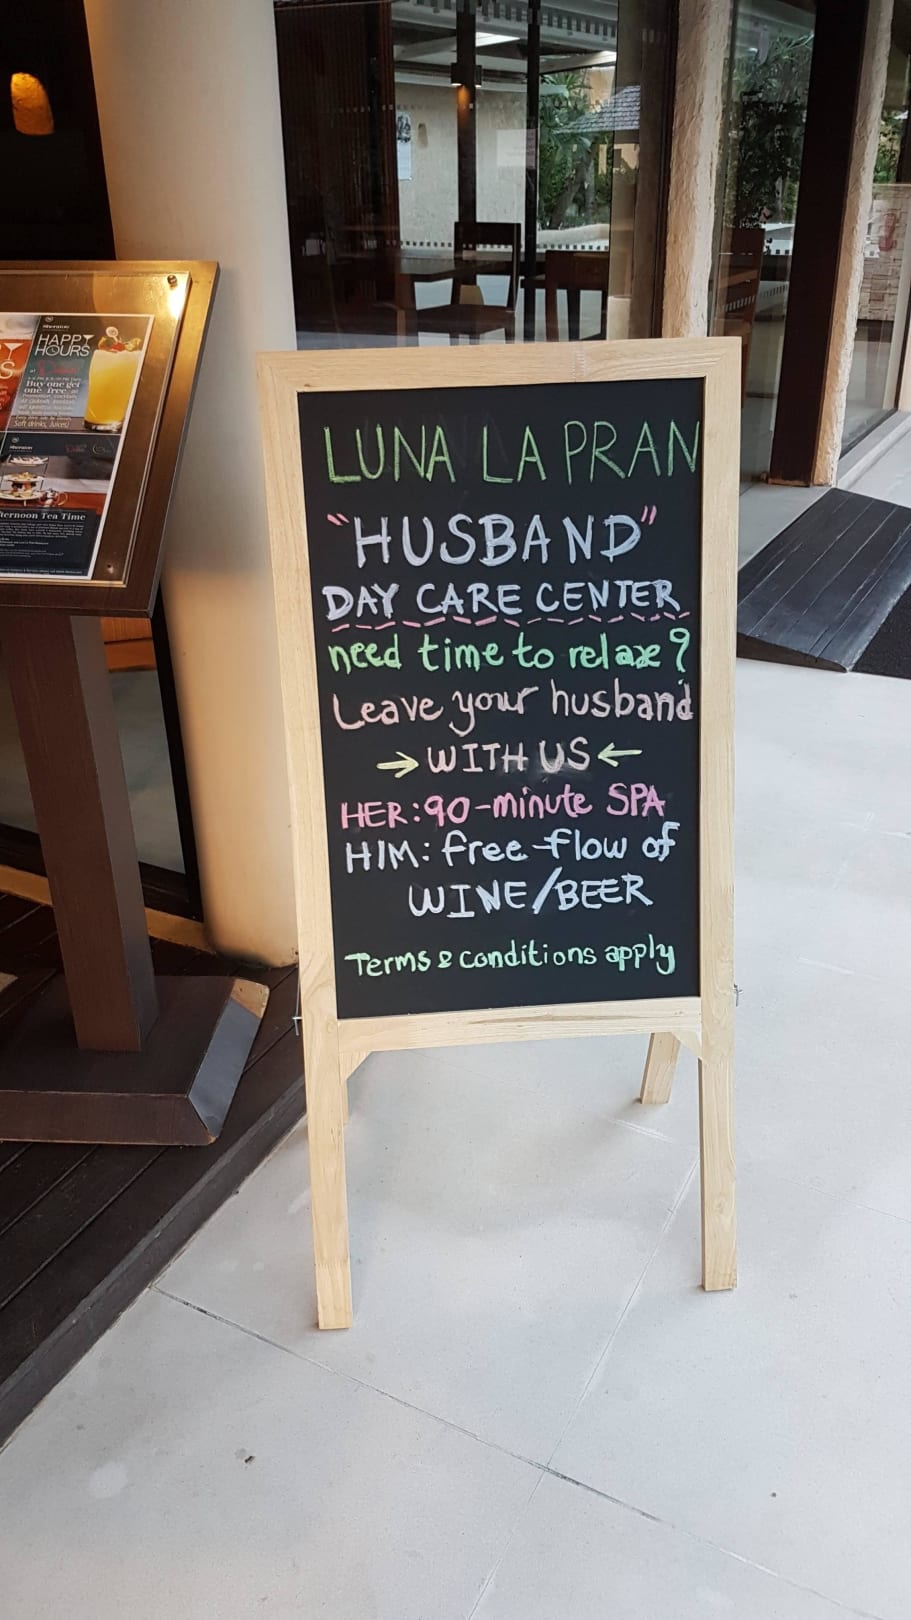 LUNA LA PRAN
"HUSBAND"
DAY CARE CENTER
need time to relaxe?
Leave your husband
→ WITH US ←
HER: 90-minute SPA
HIM: free-flow of
WINE/BEER
Terms & conditions apply
Sheraton
HAPPY
HOURS
Buy one get
one free
Soft drinks, Juices)
Sheraton
ternoon Tea Time